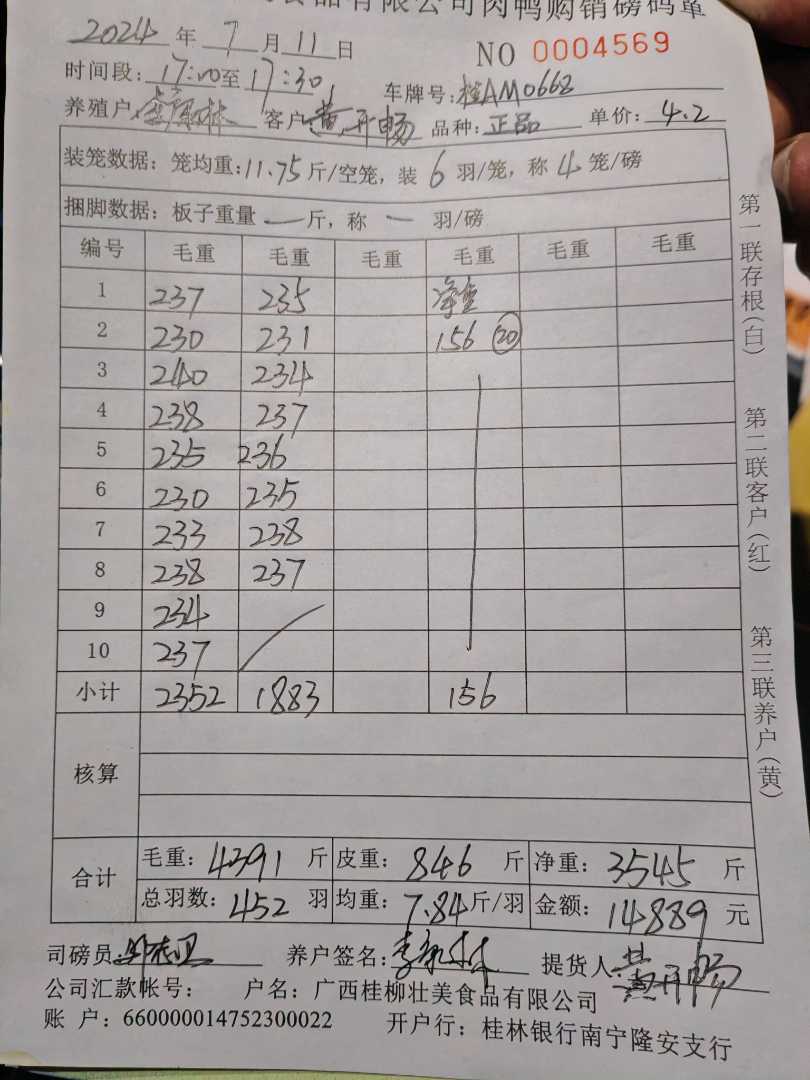 食品有限公司肉鸭购销磅码单
2024 年 7 月 11 日 NO 0004569
时间段: 17:00 至 17:30 车牌号: 桂AM0662
养殖户 林 客户 黄开畅 品种: 正品 单价: 4.2
装笼数据: 笼均重: 11.75 斤/空笼, 装 6 羽/笼, 称 4 笼/磅
捆脚数据: 板子重量 一 斤, 称 一 羽/磅
编号 毛重 毛重 毛重 毛重 毛重 毛重
1 237 235 净重
2 230 231 156 20
3 240 234
4 238 237
5 235 236
6 230 235
7 233 238
8 238 237
9 234
10 237
小计 2352 1883 156
核算
合计 毛重: 4391 斤 皮重: 846 斤 净重: 3545 斤
总羽数: 452 羽 均重: 7.84 斤/羽 金额: 14889 元
司磅员 养户签名: 提货人 黄开畅
公司汇款帐号: 户名: 广西桂柳壮美食品有限公司
账 户: 660000014752300022 开户行: 桂林银行南宁隆安支行
第一联存根(白) 第二联客户(红) 第三联养户(黄)